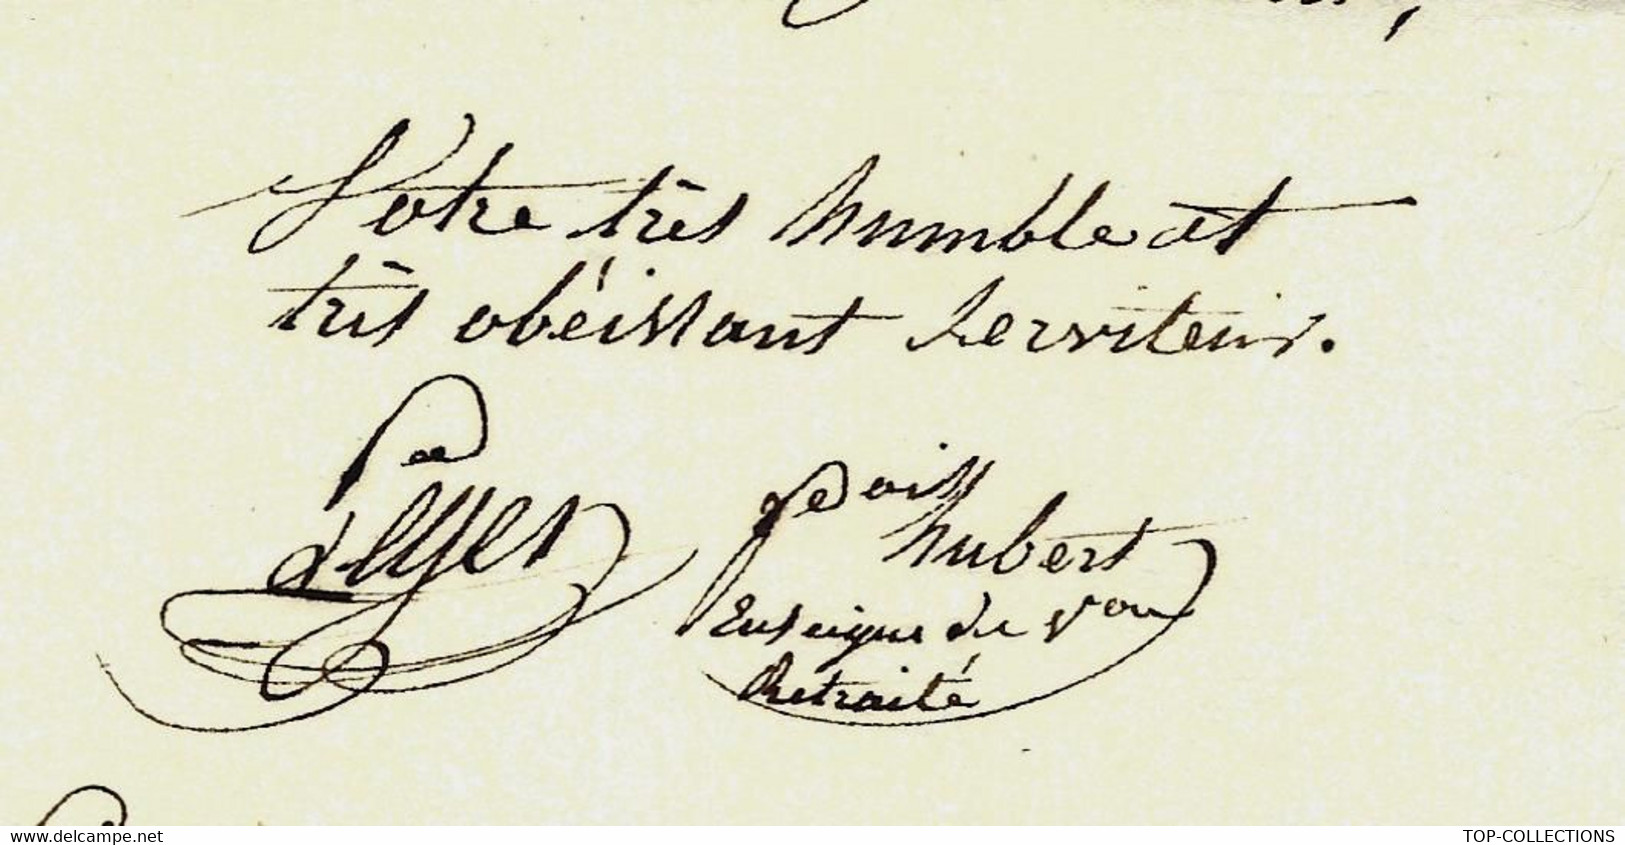 Votre très humble et
très obéissant Serviteur.
hubert
Enseigne de Vau
Retraité
www.delcampe.net
TOP-COLLECTIONS